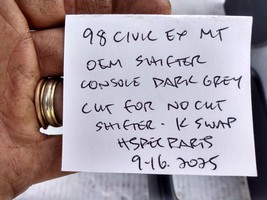 98 CIVIC EX MT
OEM SHIFTER
CONSOLE DARK GREY
CUT FOR NO CUT
SHIFTER - K SWAP
HSPECPARTS
9-16.2025